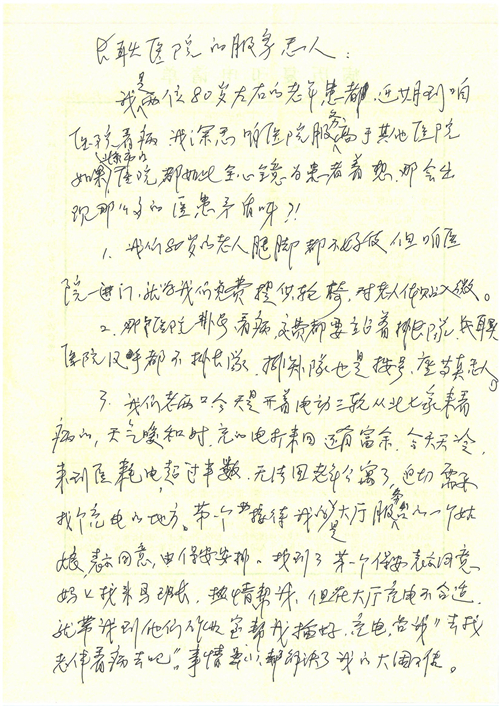 民航医院的服务感人:
我是两位80岁左右的老年患者,近廿月到咱
医院看病 我深感咱医院服务高于其他医院
如果其他的医院都如此全心镜为患者着想,那会出
现那么多的医患矛盾呀?!
1、我们80岁的老人腿脚都不好使 但咱医
院一进门,就给我们免费提供轮椅,对老人体贴入微。
2、别的医院排号看病,交费都要站着排长队,民航
医院几乎都不排长队,排短队也是按号,座等真感人
3、我们老两口今天是开着电动三轮从北七家来看
病的,天气暖和时,充的电打来回还有富余,今天天冷,
来到医耗电,超过半数,无法回老年公寓了,迫切需要
找个充电的地方。第一个接待我的是大厅服务台的一个姑
娘,表示同意,由保安安排。找到了第一个保安表示同意,
热情帮我,但在大厅充电不合适,
就带我到他们作业室帮我插好,充电,告我“去找
老伴看病去吧”,事情虽小,帮解决了我的大困难。